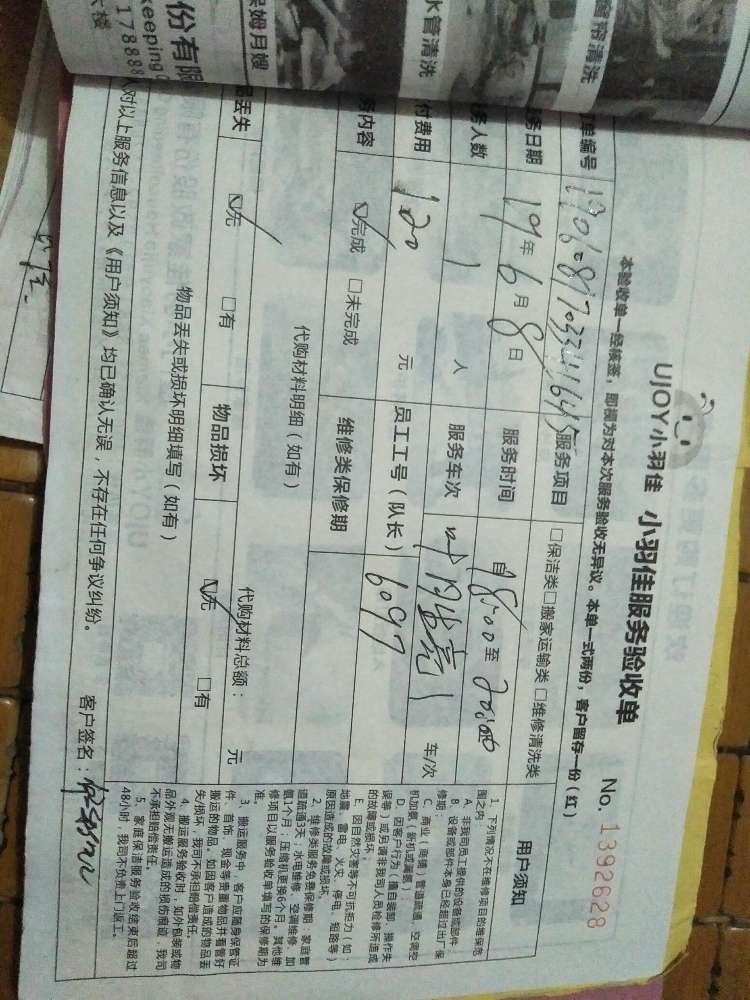 窗帘清洗
水管清洗
保姆月嫂
份有限
keeping
17888
UJOY小羽佳 小羽佳服务验收单 No. 1392628
本验收单一经核签，即视为对本次服务验收无异议。本单一式两份，客户留存一份（红）
单编号
服务项目 □保洁类□搬家运输类□维修清洗类
务日期 19年6月8日 服务时间 自18:00至20:00
务人数 1 人 服务车次 车/次
付费用 120 元 员工工号（队长） 6097
务内容 ☑完成 □未完成 维修类保修期
代购材料明细（如有） 代购材料总额： 元
品丢失 ☑无 □有 物品损坏 ☑无 □有
物品丢失或损坏明细填写（如有）
对以上服务信息以及《用户须知》均已确认无误，不存在任何争议纠纷。 客户签名：
用户须知
1、下列情况不在维修项目的维保范
围之内：
A、非我司员工提供的设备或部件；
B、设备或部件本身已经超过出厂保
修期；
C、商业（商铺）管道疏通、空调空
机加氨（新机或漏氨）；
D、因客户行为（擅自装卸、操作失
误等）或另请非我司人员检修所造成
的故障或损坏。
E、因自然灾害等不可抗拒力（如：
地震、雷电、火灾、停电、短路等）
原因造成的故障或损坏
2、维修类服务免费保修期：家庭管
道疏通3天；水电维修、空调维修、加
氨1个月；压缩机更换6个月。其他维
修项目以服务验收单填写的保修期为
准。
3、搬运服务中，客户应随身保管证
件、首饰、现金等贵重物品并看管好
搬运的物品，如因客户造成的物品丢
失/损坏，我司不承担赔偿责任。
4、搬运服务验收时，如外包装或物
品外观无搬运造成的损伤痕迹，我司
不承担赔偿责任。
5、家庭保洁服务验收结束后超过
48小时，我司不负责上门返工。